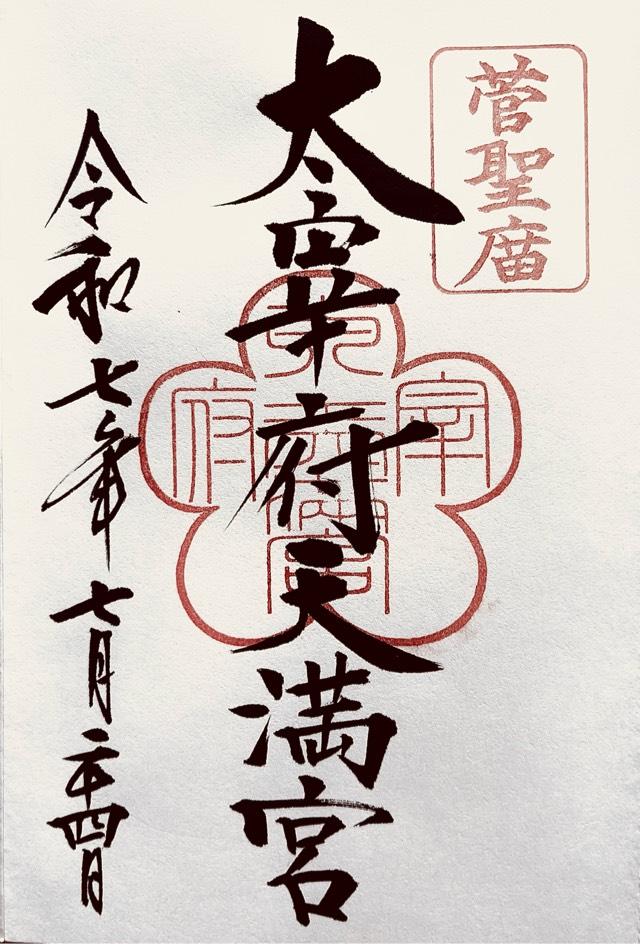 菅聖廟
太宰府天満宮
令和七年七月二十四日